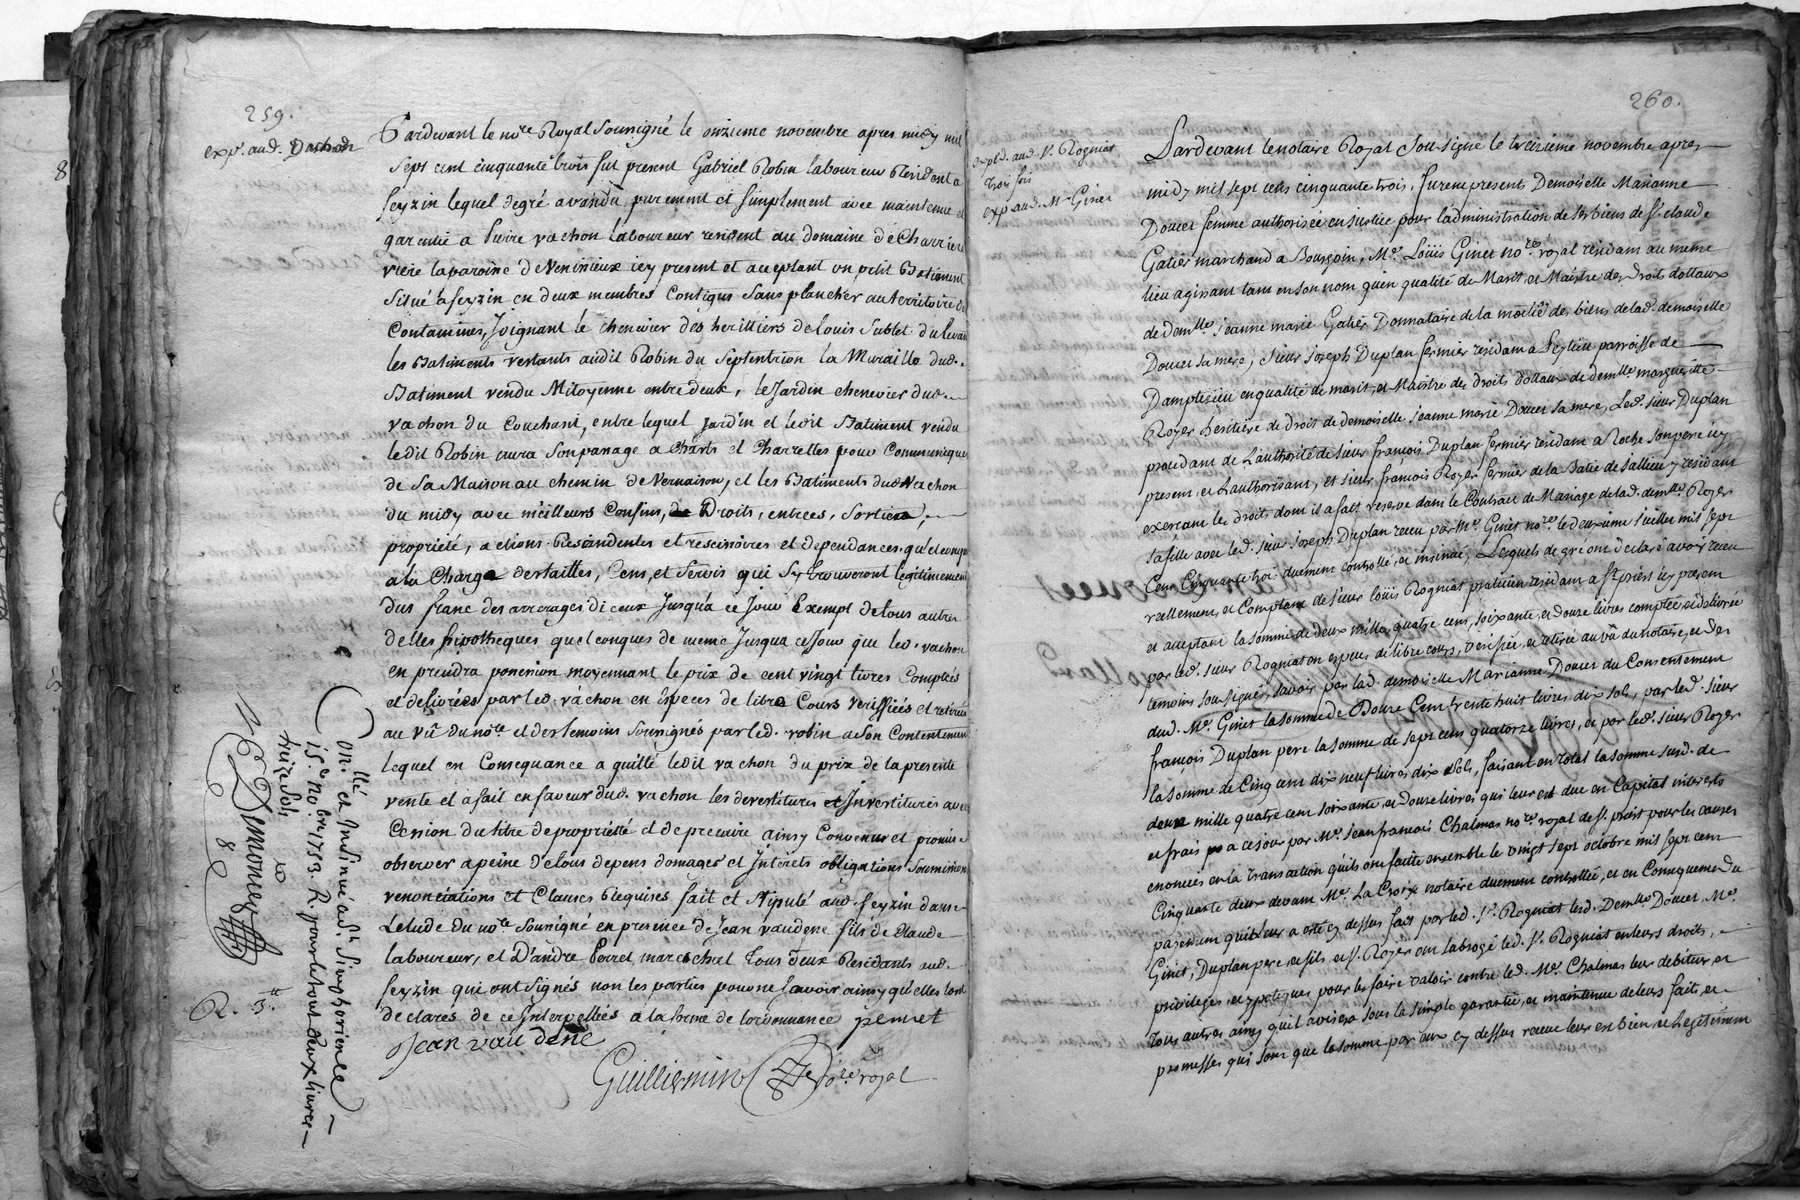 259.
exp. aud. Vachon
Pardevant le no.re Royal Soussigné le onzieme novembre apres midy mil
Sept cent cinquante trois fut present Gabriel Robin laboureur Resident a
feyzin lequel degré a vandu purement et simplement avec maintenue et
garentie a Pierre vachon laboureur resident au domaine de Charriere
viere laparoisse de Venissieux icy present et acceptant un petit Batiment
situé a feyzin en deux membres Contigus sans plancher au territoire de
Contamines, Joignant le chenevier des herittiers de Louis Sublet du levant
les Batiments restants audit Robin du Septentrion la Muraille dud.
Batiment vendu Mitoyenne entre deux, le Jardin chenevier dud.
vachon du Couchant, entre lequel jardin et ledit Batiment vendu
ledit Robin aura son passage a Charts et Charrettes pour Communiquer
de sa Maison au chemin de Vernaison, et les Batiments dud. Vachon
du midy avec meilleurs Confins, Droits, entrees, Sorties,
propriété, actions Rescindentes et rescisoires et dependances quelconques
a la Charge des tailles, Cens, et Servis qui sy trouveront legitimement
dus franc des arrerages diceux Jusqua ce Jour Exempt de tous autres
dettes hipotheques quelconques de meme Jusqua ce Jour que led. vachon
en prendra possession moyennant le prix de cent vingt livres Comptées
et delivrées par led. vachon en especes de libre Cours veriffiées et retirées
au vû du no.re et des temoins Sousignés par led. robin a son Contentement
lequel en Consequance a quitté ledit vachon du prix de la presente
vente et a fait en faveur dud. vachon les devestitures et Investitures avec
Cession du titre de propriété et de precaire ainsy Convenus et promis
observer a peine de tous depens domages et Interets obligations Soumissions
renonciations et Clauses Requises fait et stipulé aud. feyzin dans
Letude du no.re Sousigné en presence de Jean vaudene fils de Claude
laboureur, et D'andré Perret marechal tous deux Residants aud.
feyzin qui ont signés non les parties pour ne scavoir ainsy quelles l'ont
declarés de ce Interpellées a la forme de lordonnance perret
Jean vau dene
Guilliermin no.re royal
Con.llé et Insinué a S.t Simphorien le
15.e No.bre 1753. R. pour le tout deux livres
treize sols
Demoncey
R. 3.tt
260.
exped. aud. S.r Rogniat
trois fois
exp aud. M.e Ginet
Pardevant lenotaire Royal Soussigné le treizieme novembre apres
midy mil sept cens cinquante trois, furent present Demoiselle Marianne
Doucet femme authorisée en justice pour l'administration de ses biens de S.r claude
Galier marchand a Bourgoin, M.e Loüis Ginet no.re royal residant au meme
lieu agissant tant en son nom quen qualité de Marit et Maistre des droits dottaux
de dem.lle Jeanne marie Galier Donnataire de la moitié des biens de lad. demoiselle
Doucet sa mere, sieur Joseph Duplan fermier residant a Leytieu parroisse de
Damptezieu en qualité de marit, et Maistre des droits dottaux de dem.lle marguerite
Royer heritiere de droit de demoiselle Jeanne marie Doucet sa mere, Led. sieur Duplan
procedant de l'authorité de sieur françois Duplan fermier residant a Roche son pere icy
present et l'authorisant, et sieur françois Royer fermier de la Batie de Salliew y residant
exercant les droits dont il a fait reserve dans le Contract de Mariage de lad. dem.lle Royer
sa fille avec led. sieur Joseph Duplan receu par M.e Ginet no.re le deuxieme Juillet mil sept
Cent Cinquante trois duement controllé, et insinué, Lesquels de gré ont declaré avoir receu
reellement, et Comptant de sieur loüis Rogniat praticien residant a S.t priest icy present
et acceptant la somme de deux mille quatre cens, soixante, et douze livres comptée, et delivrée
par led. sieur Rogniat en especes de libre cours, verifiée, et retirée au vû du notaire, et des
temoins soussignés, savoir par lad. demoiselle Marianne Doucet du Consentement
dud. M.e Ginet la somme de Douze Cent trente huit livres dix sols, par led. sieur
françois Duplan pere la somme de sept cens quatorze livres, et par led. sieur Royer
la somme de Cinq cent dix neuf livres dix sols, faisant en total la somme susd. de
deux mille quatre cent soixante, et douze livres qui leur est due en Capital interets
et frais a ce jour par M.e Jean francois Chalmas no.re royal de S.t priest pour les causes
enoncées en la transaction quils ont faitte ensemble le vingt sept octobre mil sept cent
Cinquante deux devant M.e La Croix notaire duement controllée, et en Consequence du
payement qui leur a esté cy dessus fait par led. S.r Rogniat lesd. Dem.lle Doucet M.e
Ginet, Duplan pere, et fils et S.r Royer ont subrogé led. S.r Rogniat en leurs droits,
privileges, et ypoteques pour les faire valoir contre led. M.e Chalmas leur debiteur, et
tous autres ainsy quil avisera sous la simple garantie, et maintenue de leurs faits, et
promesses qui sont que la somme par eux cy dessus receue leur est bien, et legitimement